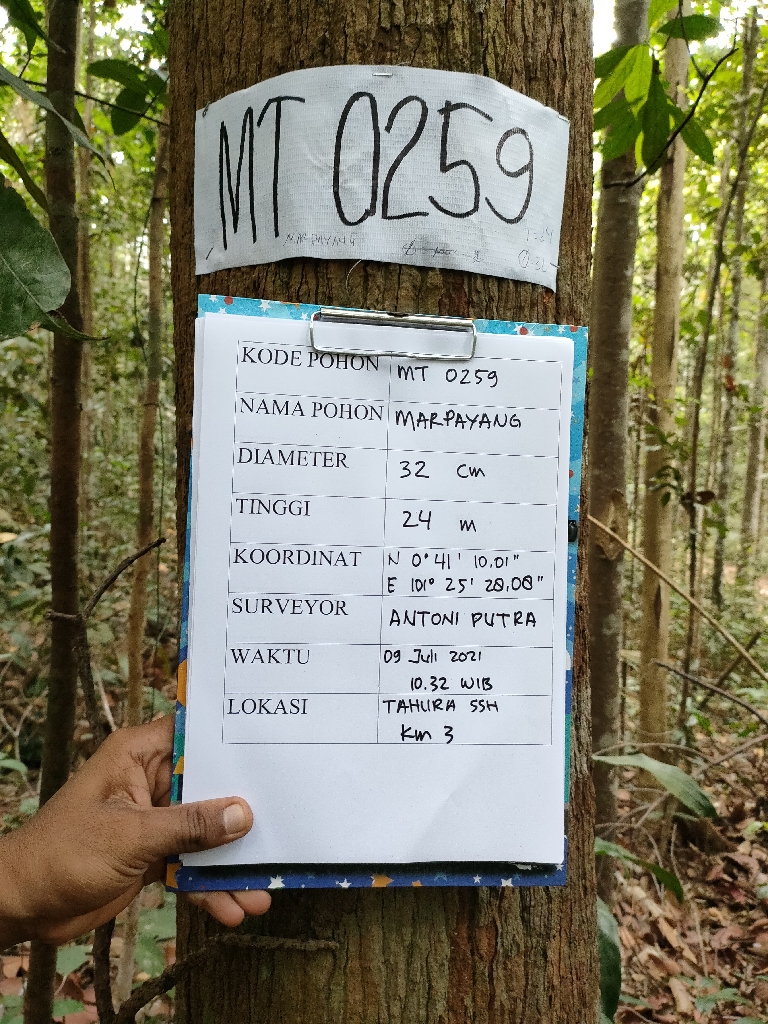 MT 0259
MARPAYANG
KODE POHON MT 0259
NAMA POHON MARPAYANG
DIAMETER 32 cm
TINGGI 24 m
KOORDINAT N 0° 41' 10,01"
E 101° 25' 20,00"
SURVEYOR ANTONI PUTRA
WAKTU 09 Juli 2021
10.32 WIB
LOKASI TAHURA SSH
Km 3